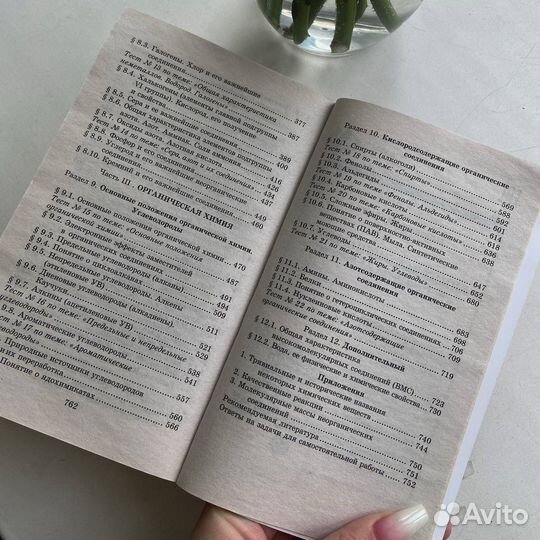 § 8.3. Галогены. Хлор и его важнейшие
соединения 377
Тест № 15 по теме: «Общая характеристика
неметаллов. Водород. Галогены» 387
§ 8.4. Халькогены (элементы главной подгруппы
VI группы). Кислород, его получение
и свойства 389
§ 8.5. Сера и ее важнейшие соединения 400
§ 8.6. Общая характеристика элементов подгруппы
азота. Азот. Аммиак. Соли аммония 416
§ 8.7. Оксиды азота. Азотная кислота 426
Тест № по теме: «Сера, азот и их соединения» 434
§ 8.8. Фосфор и его соединения 437
§ 8.9. Углерод и его важнейшие неорганические
соединения 449
§ 8.10. Кремний и его важнейшие соединения 460
Часть III. ОРГАНИЧЕСКАЯ ХИМИЯ
Раздел 9. Основные положения органической химии.
Углеводороды
§ 9.1. Основные положения органической химии 470
Тест № по теме: «Основные положения
органической химии» 484
§ 9.2. Электронные эффекты заместителей
в органических соединениях
§ 9.3. Предельные углеводороды (алканы) 491
§ 9.4. Понятие о циклоалканах 494
§ 9.5. Непредельные углеводороды. Алкены 509
§ 9.6. Диеновые углеводороды (алкадиены).
Каучуки
§ 9.7. Алкины (ацетиленовые УВ) 521
Тест № по теме: «Предельные и непредельные
углеводороды» 529
§ 9.8. Ароматические углеводороды 538
Тест № 17 по теме: «Ароматические
углеводороды» 557
Природные источники углеводородов
и их переработка 560
Понятие о ядохимикатах 566
762
Раздел 10. Кислородсодержащие органические
соединения
§ 10.1. Спирты (алкоголи) 569
Тест № 18 по теме: «Спирты»
§ 10.2. Фенолы 588
§ 10.3. Альдегиды 592
Тест № по теме: «Фенолы. Альдегиды» 601
§ 10.4. Карбоновые кислоты
Тест № по теме: «Карбоновые кислоты» 614
§ 10.5. Сложные эфиры. Жиры
§ 10.6. Понятие о поверхностно-активных
веществах (ПАВ). Мыла. Синтетические
моющие средства 636
§ 10.7. Углеводы 638
Тест № 21 по теме: «Жиры. Углеводы»
Раздел 11. Азотсодержащие органические
соединения
§ 11.1. Амины. Аминокислоты
§ 11.2. Белки 680
§ 11.3. Понятие о гетероциклических соединениях 683
§ 11.4. Нуклеиновые кислоты 698
Тест № 22 по теме: «Азотсодержащие
органические соединения» 709
Раздел 12. Дополнительный
§ 12.1. Общая характеристика
высокомолекулярных соединений (ВМС) 719
§ 12.2. Вода, ее физические и химические свойства 730
Приложения
1. Тривиальные и исторические названия
некоторых химических веществ
2. Качественные реакции 740
3. Молекулярные массы неорганических
соединений 750
Рекомендуемая литература 751
Ответы на задачи для самостоятельной работы 752
Avito